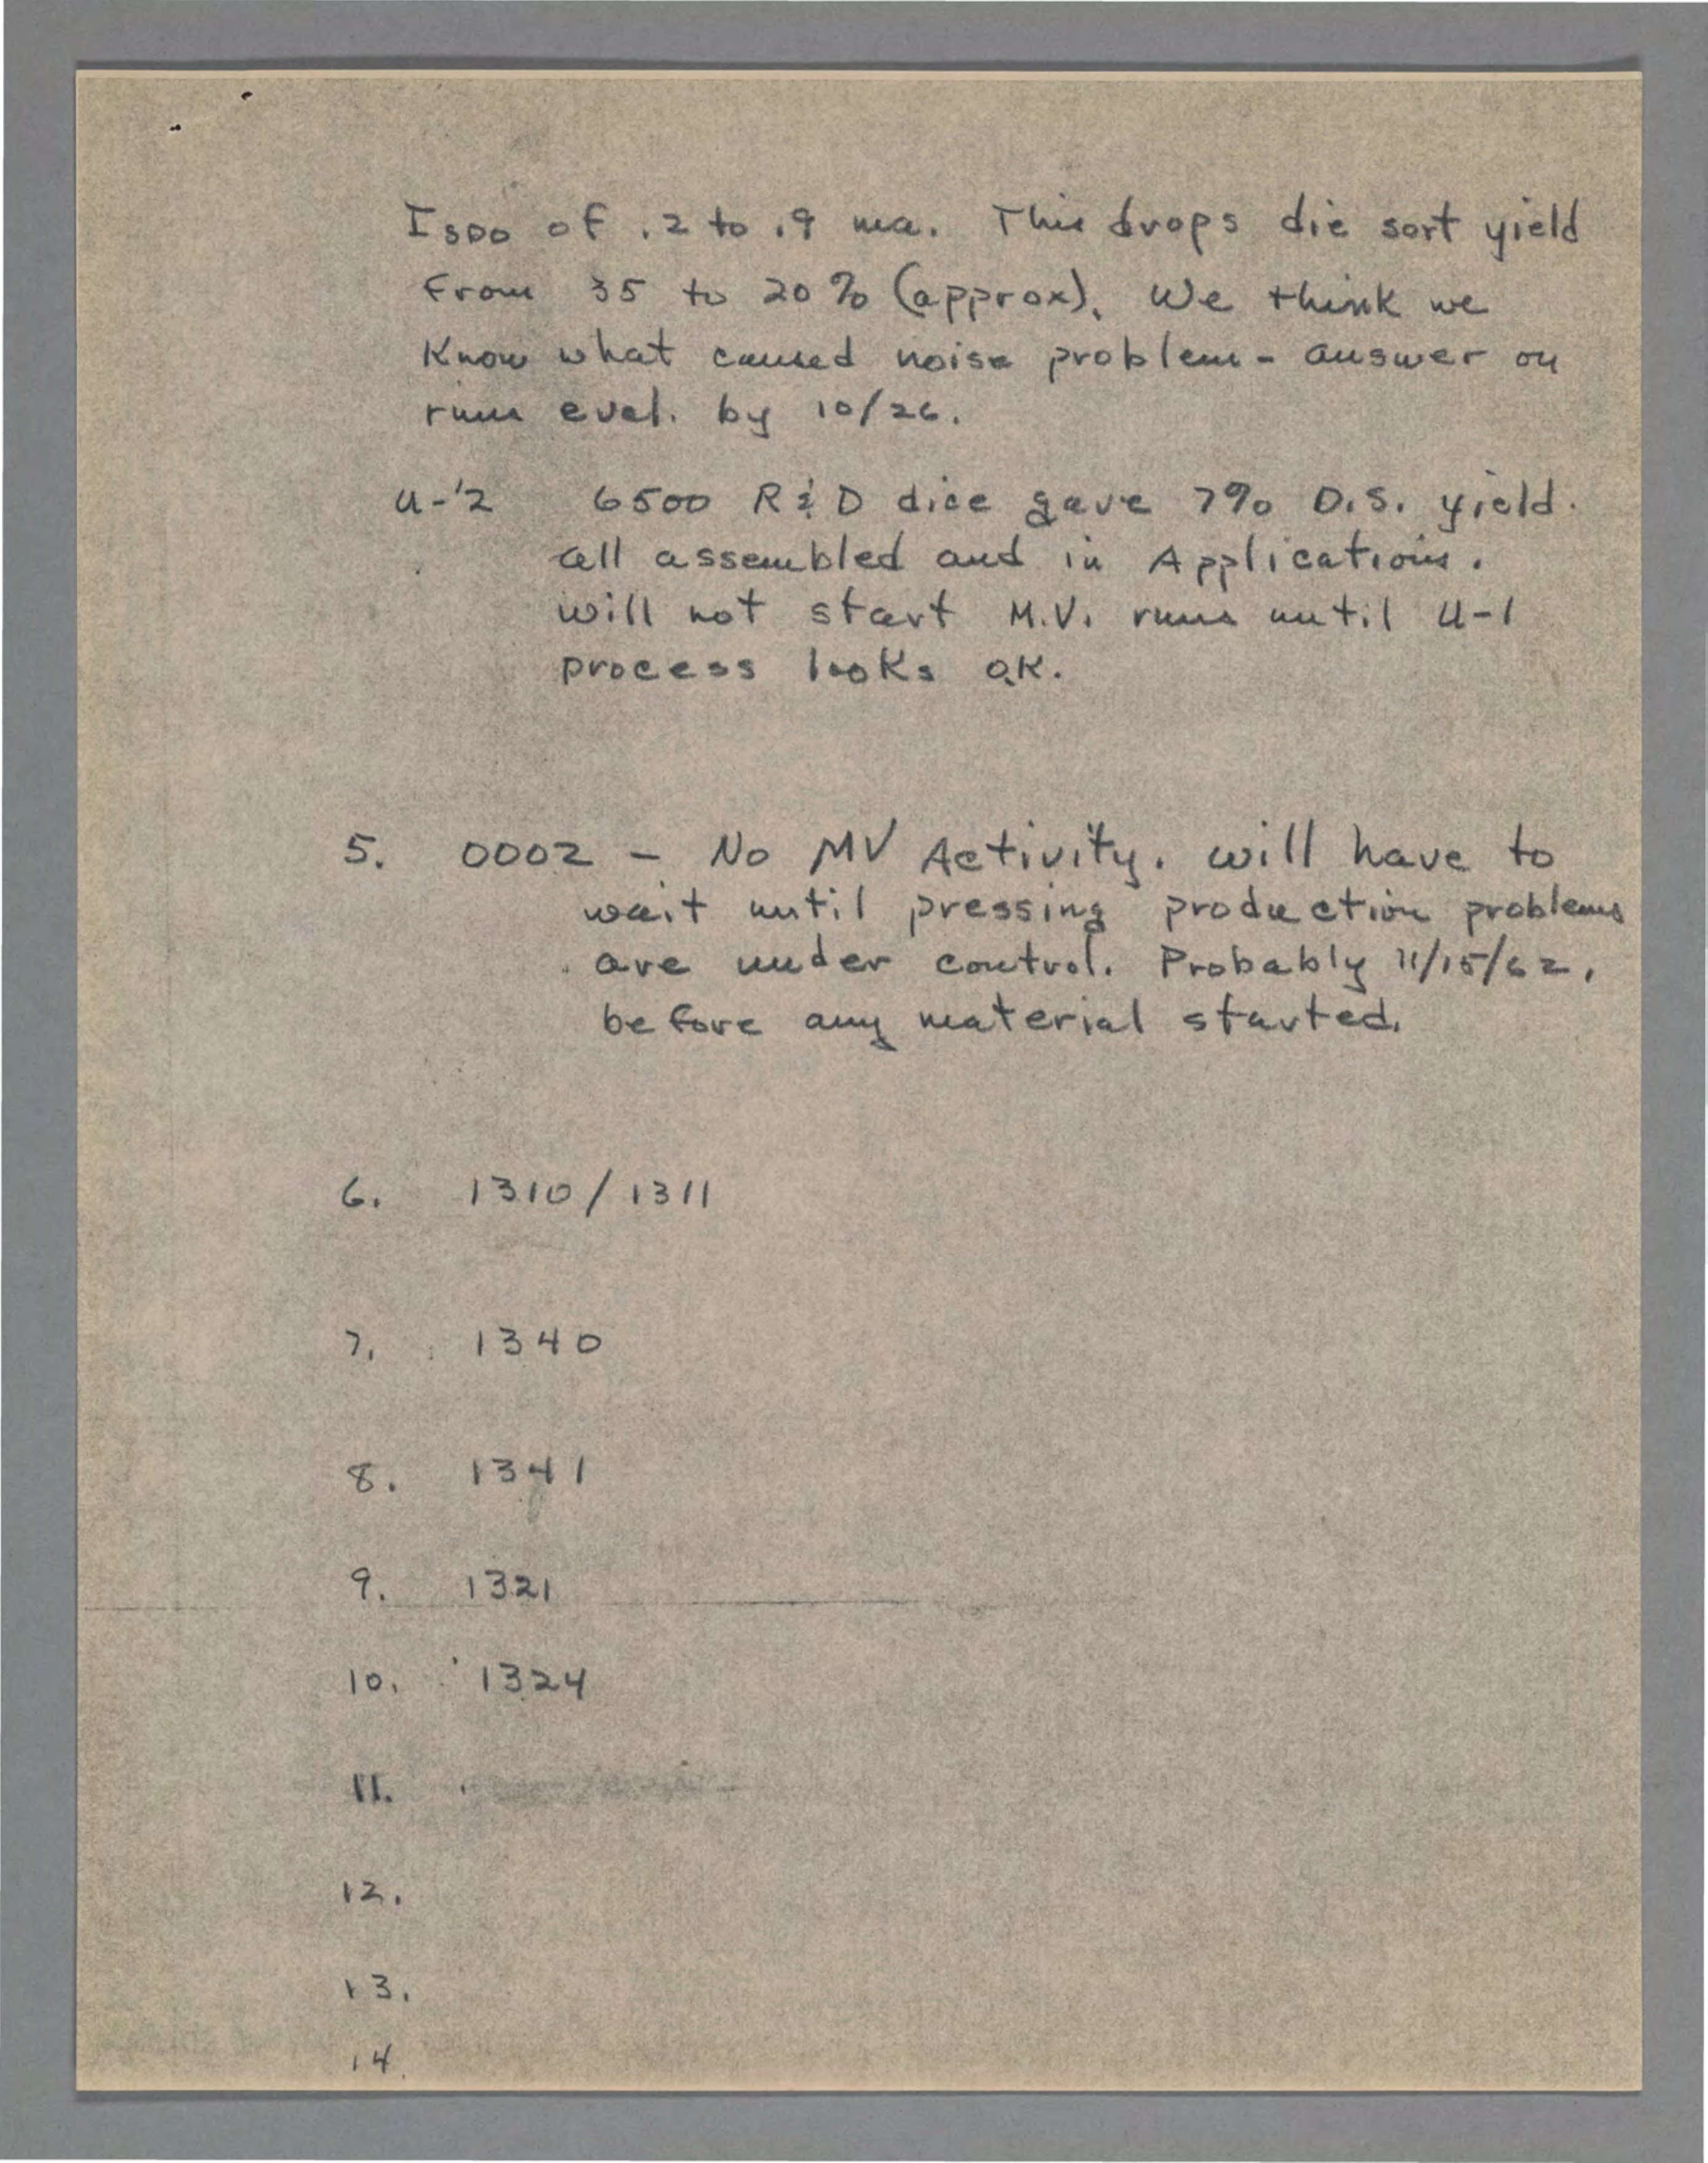 I SDO of .2 to .9 ma. This drops die sort yield
from 35 to 20% (approx). We think we
know what caused noise problem - answer on
runs eval. by 10/26.
U-2 6500 R & D dice gave 7% D.S. yield.
all assembled and in Applications.
will not start M.V. runs until U-1
process looks O.K.
5. 0002 - No MV Activity. will have to
wait until pressing production problems
are under control. Probably 11/15/62,
before any material started.
6. 1310/1311
7. 1340
8. 1341
9. 1321
10. 1324
11.
12.
13.
14.